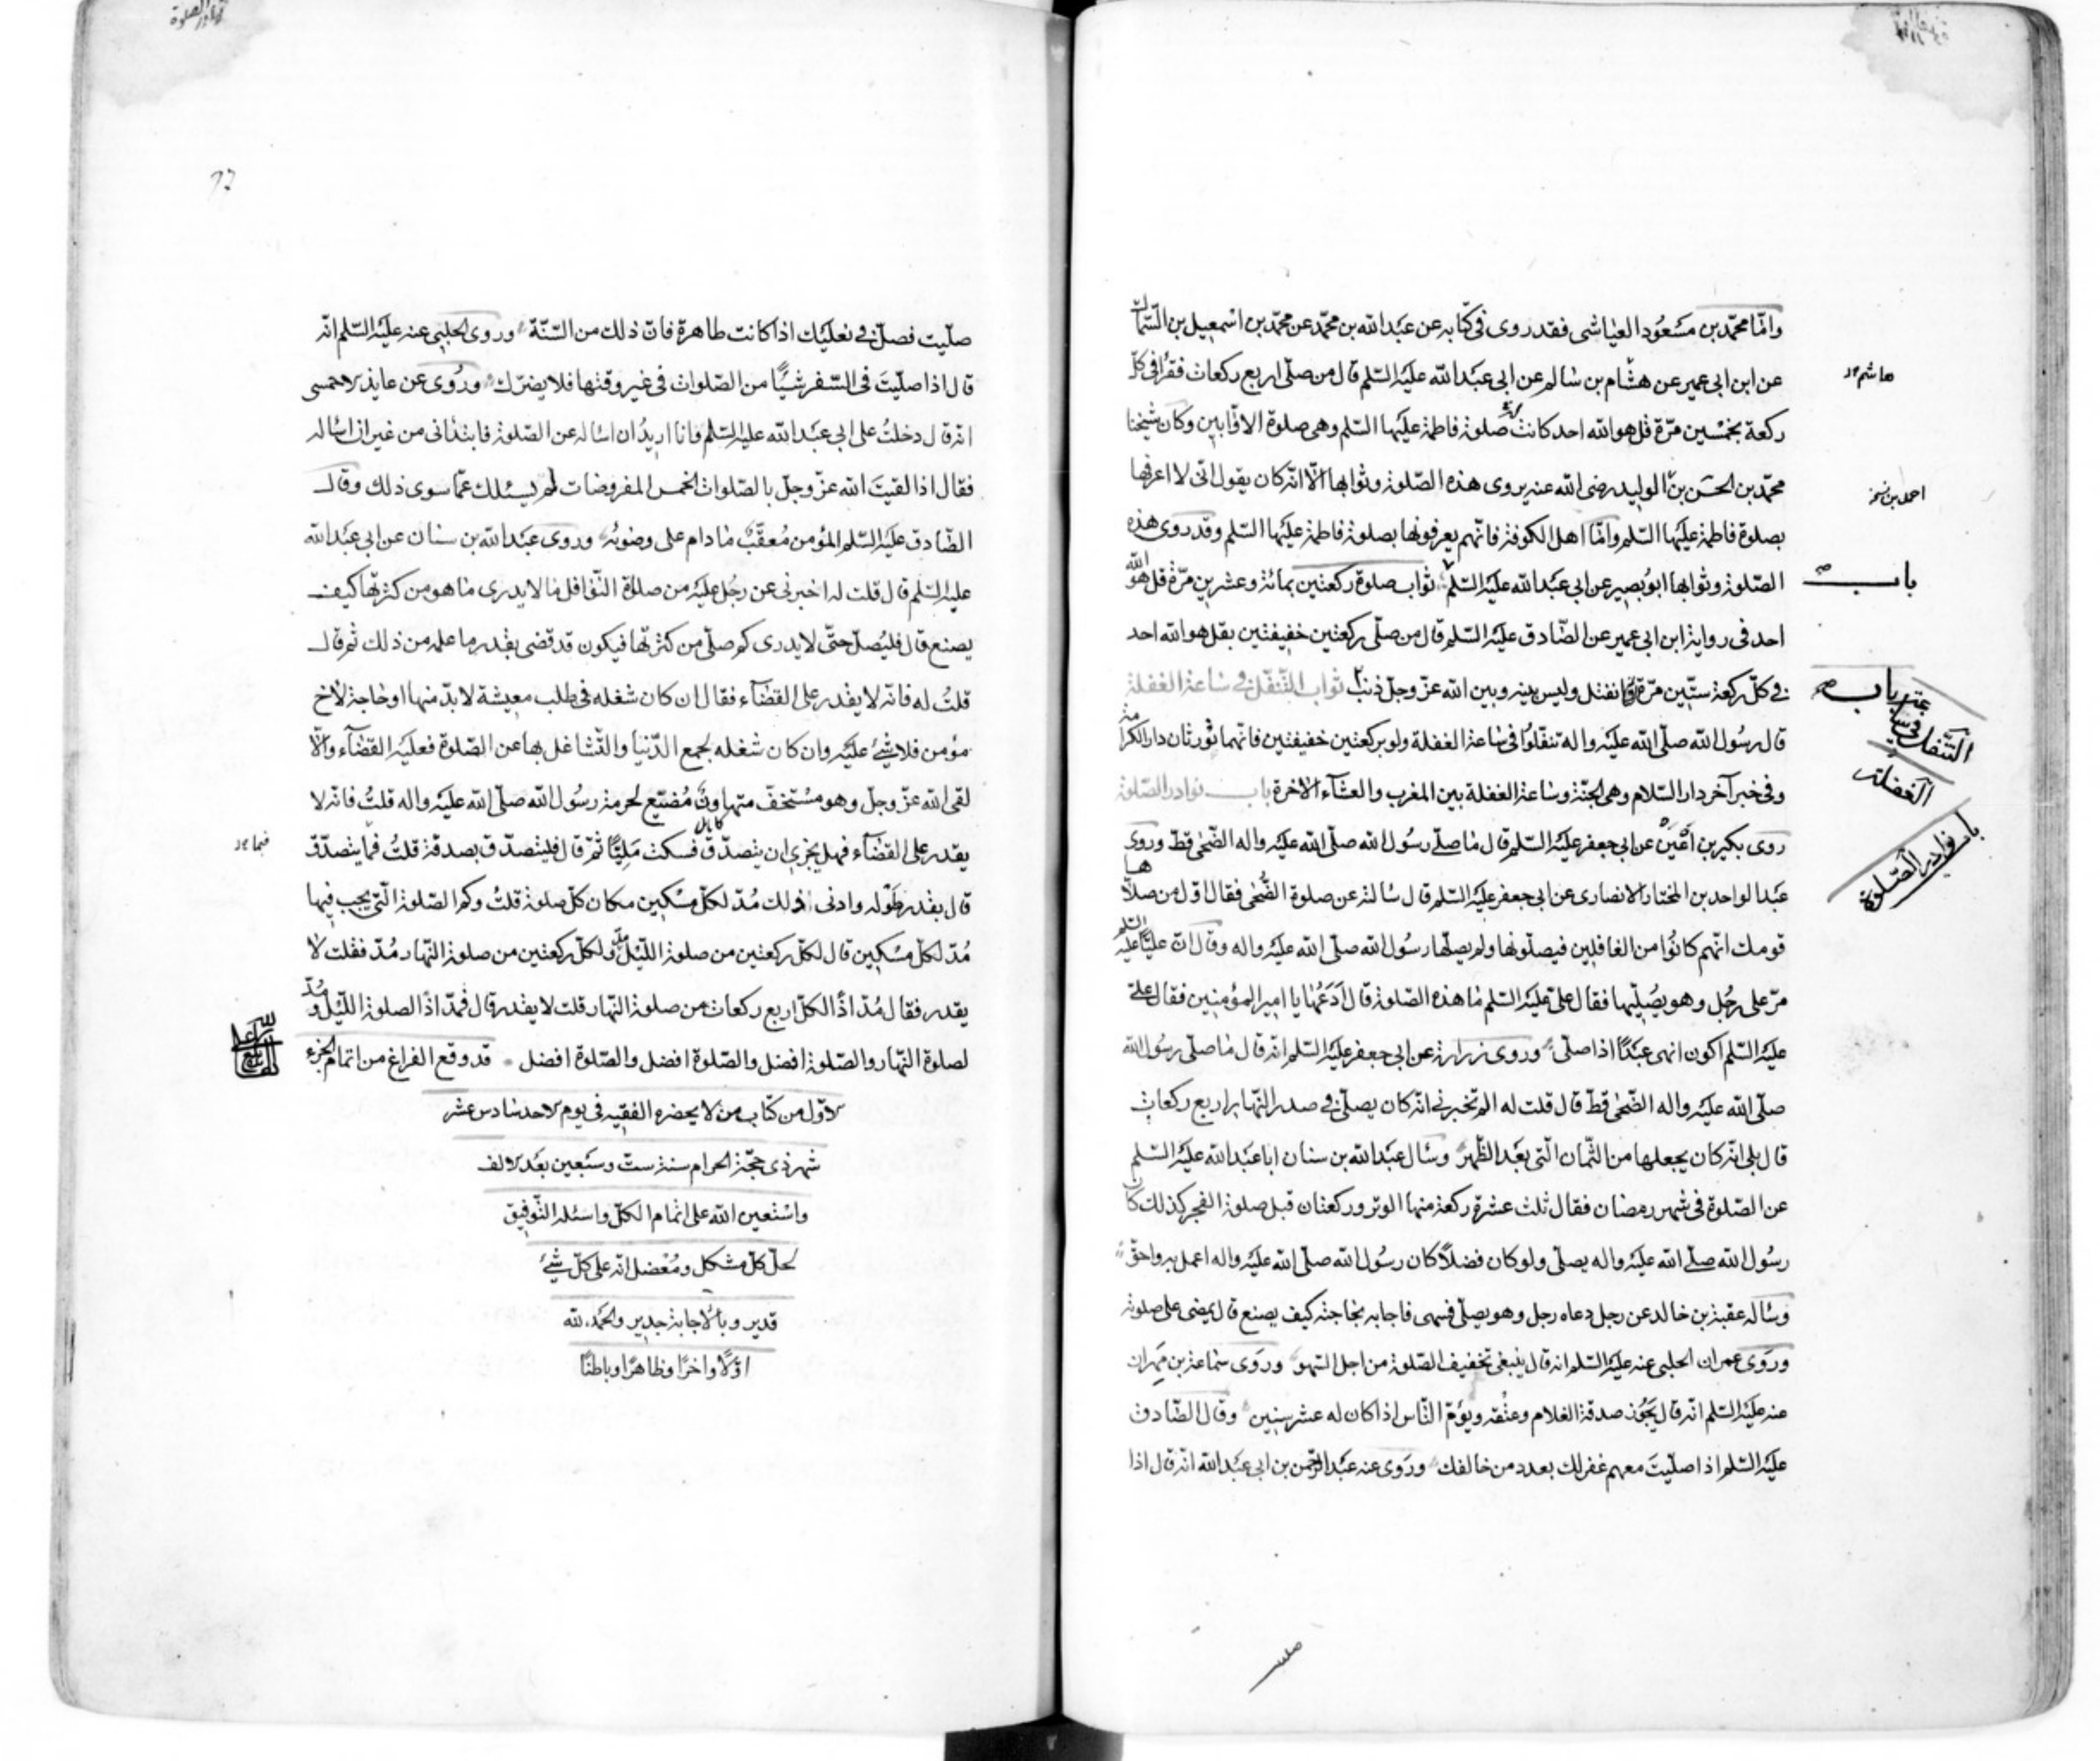 وامّا محمّد بن مسعُود العياشى فقد روى فى كتابه عن عبد الله بن محمّد عن محمّد بن اسمعيل بن السّماك
عن ابن ابى عمير عن هشام بن سالم عن ابى عبد الله عليه السّلم قال من صلّى اربع ركعات فقرأ فى كلّ
هاشم
ركعة بخمسين مرّة قل هو الله احد كانت صلوة فاطمة عليها السّلم وهى صلوة الاوّابين وكان شيخنا
محمّد بن الحسن بن الوليد رضى الله عنه يروى هذه الصّلوة وثوابها الّا انّه كان يقول انّى لا اعرفها
احمد بن
بصلوة فاطمة عليها السّلم وامّا اهل الكوفة فانّهم يعرفونها بصلوة فاطمة عليها السّلم وقد روى هذه
الصّلوة وثوابها ابو بصير عن ابى عبد الله عليه السّلم ثواب صلوة ركعتين بمائة وعشرين مرّة قل هو الله
باب
احد فى رواية ابن ابى عمير عن الصّادق عليه السّلم قال من صلّى ركعتين خفيفتين بقل هو الله احد
فى كلّ ركعة ستّين مرّة انفتل وليس بينه وبين الله عزّ وجلّ ذنب ثواب التّنفّل فى ساعة الغفلة
باب
التّنفل فى
الغفلة
قال رسُول الله صلّى الله عليه واله تنفّلوُا فى ساعة الغفلة ولو بركعتين خفيفتين فانّهما تُورثان دار الكرامة
وفى خبر آخر دار السّلام وهى الجنّة وساعة الغفلة بين المغرب والعشآء الاخرة باب نوادر الصّلوة
باب نوادر الصّلوة
روى بكير بن اَعْيَن عن ابى جعفر عليه السّلم قال ما صلّى رسُول الله صلّى الله عليه واله الضّحى قطّ وروى
عبد الواحد بن المختار الانصارى عن ابى جعفر عليه السّلم قال سالته عن صلوة الضُّحى فقال اوّل من صلّاها
قومك انّهم كانوُا من الغافلين فيصلّونها ولم يصلّها رسُول الله صلّى الله عليه واله وقال انّ عليًّا عليه السّلم
مرّ على رجُل وهو يصُلّيها فقال علىّ عليه السّلم ما هذه الصّلوة قال اَدَعُها يا امير المؤمنين فقال علىّ
عليه السّلم اكون انهى عبدًا اذا صلّى وروى زرارة عن ابى جعفر عليه السّلم انّه قال ما صلّى رسُول الله
صلّى الله عليه واله الضّحى قطّ قال قلت له الم تخبرنى انّه كان يصلّى فى صدر النّهار اربع ركعات
قال بلى انّه كان يجعلها من الثّمان الّتى بعد الظّهر وسال عبد الله بن سنان ابا عبد الله عليه السّلم
عن الصّلوة فى شهر رمضان فقال ثلث عشرة ركعة منها الوتر وركعتان قبل صلوة الفجر كذلك كان
رسُول الله صلّى الله عليه واله يصلّى ولو كان فضلًا كان رسُول الله صلّى الله عليه واله اعمل به واحقّ
وساله عقبة بن خالد عن رجل دعاه رجل وهو يصلّى فسهى فاجابه بحاجته كيف يصنع قال يمضى على صلوته
وروى عمران الحلبى عنه عليه السّلم انه قال ينبغى تخفيف الصّلوة من اجل السّهو وروى سماعة بن مهران
عنه عليه السّلم انّه قال يجُوز صدقة الغلام وعتقه ويؤمّ النّاس اذا كان له عشر سنين وقال الصّادق
عليه السّلم اذا صلّيت معهم غفر لك بعدد من خالفك وروى عنه عبد الرّحمن بن ابى عبد الله انّه قال اذا
صلّيت
صلّيت فصلّ فى نعليك اذا كانت طاهرة فانّ ذلك من السّنّة وروى الحلبى عنه عليه السّلم انّه
قال اذا صلّيتَ فى السّفر شيئًا من الصّلوات فى غير وقتها فلا يضرّك وروُى عن عايذ الاحمسى
انّه قال دخلتُ على ابى عبد الله عليه السّلم وانا اريدُ ان اساله عن الصّلوة فابتدأنى من غير ان اساله
فقال اذا لقيتَ الله عزّ وجلّ بالصّلوات الخمس المفروضات لم يسئلك عمّا سوى ذلك وقال
الصّادق عليه السّلم المؤمن مُعقّبٌ ما دام على وضوئه وروى عبد الله بن سنان عن ابى عبد الله
عليه السّلم قال قلت له اخبرنى عن رجُل عليه من صلاة النّوافل ما لا يدرى ما هو من كثرتها كيف
يصنع قال فليُصلّ حتّى لا يدرى كم صلّى من كثرتها فيكون قد قضى بقدر ما علمه من ذلك ثم قال
قلتُ له فانّه لا يقدر على القضآء فقال ان كان شغله فى طلب معيشة لا بدّ منها او حاجة لاخ
مؤمن فلا شىء عليه وان كان شغله لجمع الدّنيا والتّشاغل بها عن الصّلوة فعليه القضآء والّا
لقى الله عزّ وجلّ وهو مستخفّ متهاون مُضيّع لحرمة رسُول الله صلّى الله عليه واله قلتُ فانّه لا
يقدر على القضآء فهل يجزى ان يتصدّق فسكت مَليًّا ثمّ قال فليتصدّق بصدقة قلتُ فما يتصدّق
فبما
قال بقدر طَوْله وادنى ذلك مُدّ لكلّ مسكين مكان كلّ صلوة قلتُ وكم الصّلوة الّتى يجب فيها
مُدّ لكلّ مسكين قال لكلّ ركعتين من صلوة اللّيل ولكلّ ركعتين من صلوة النّهار مُدّ فقلت لا
يقدر فقال مُدّ اذًا لكلّ اربع ركعات من صلوة النّهار قلت لا يقدر قال فمدّ اذًا لصلوة اللّيل ومُدّ
لصلوة النّهار والصّلوة افضل والصّلوة افضل والصّلوة افضل قد وقع الفراغ من اتمام الجزء
الاوّل من كتاب من لا يحضره الفقيه فى يوم الاحد سادس عشر
شهر ذى حجّة الحرام سنة ستّ وسبعين بعد الالف
واستعين الله على اتمام الكلّ واسئله التّوفيق
لحلّ كلّ مشكل ومُعْضل انّه على كلّ شىء
قدير وبالاجابة جدير والحمد لله
اوّلًا واخرًا وظاهرًا وباطنًا